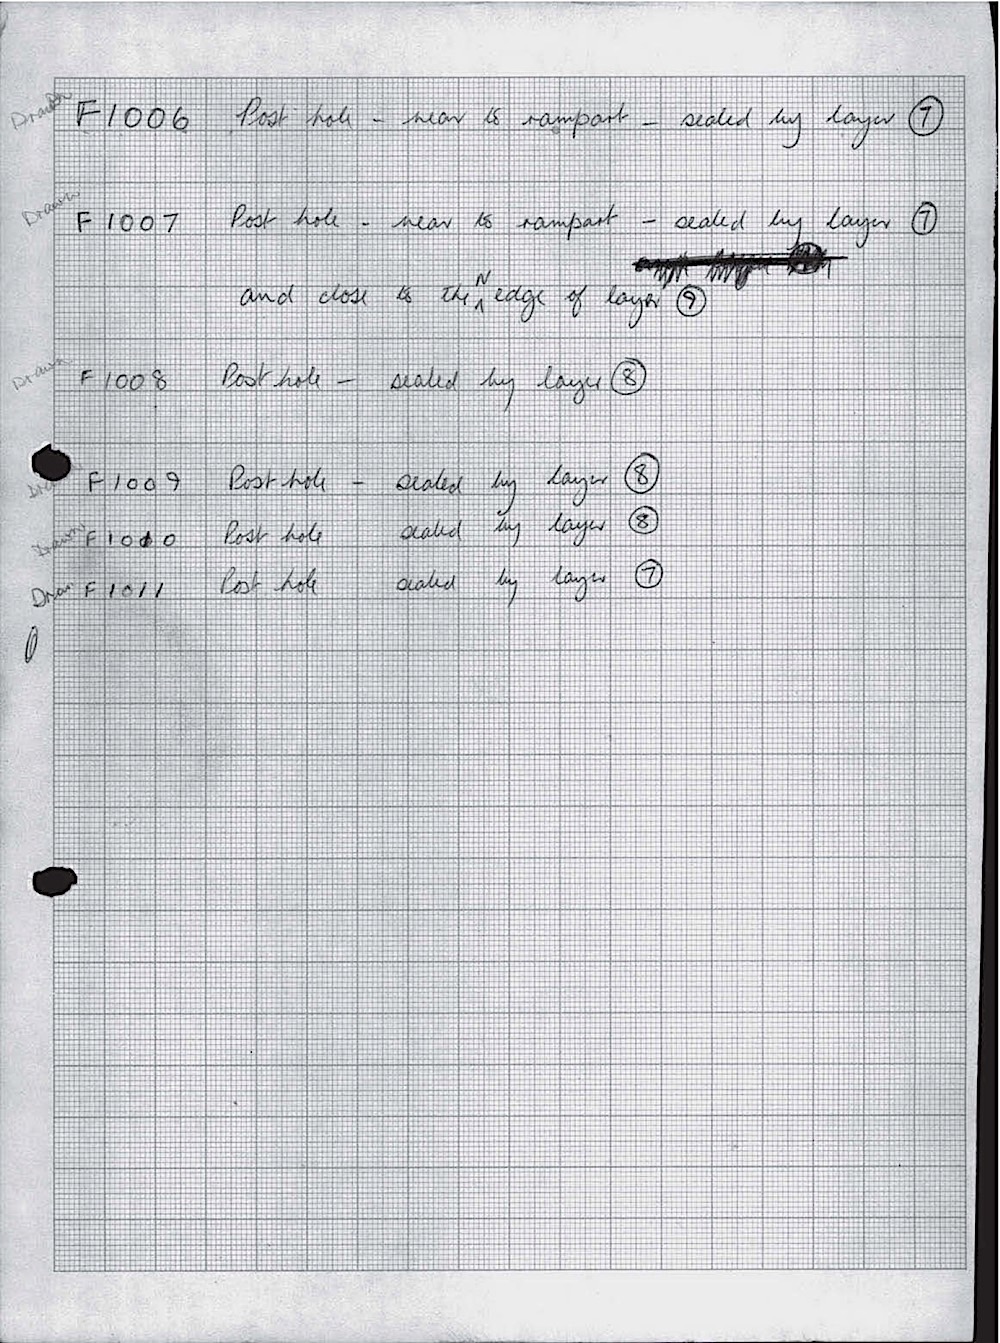 Drawn F1006 Post hole - near to rampart - sealed by layer ⑦
Drawn F1007 Post hole - near to rampart - sealed by layer ⑦
and close to the N edge of layer ⑨
Drawn F1008 Post hole - sealed by layer ⑧
Drawn F1009 Post hole - sealed by layer ⑧
Drawn F1010 Post hole sealed by layer ⑧
Drawn F1011 Post hole sealed by layer ⑦